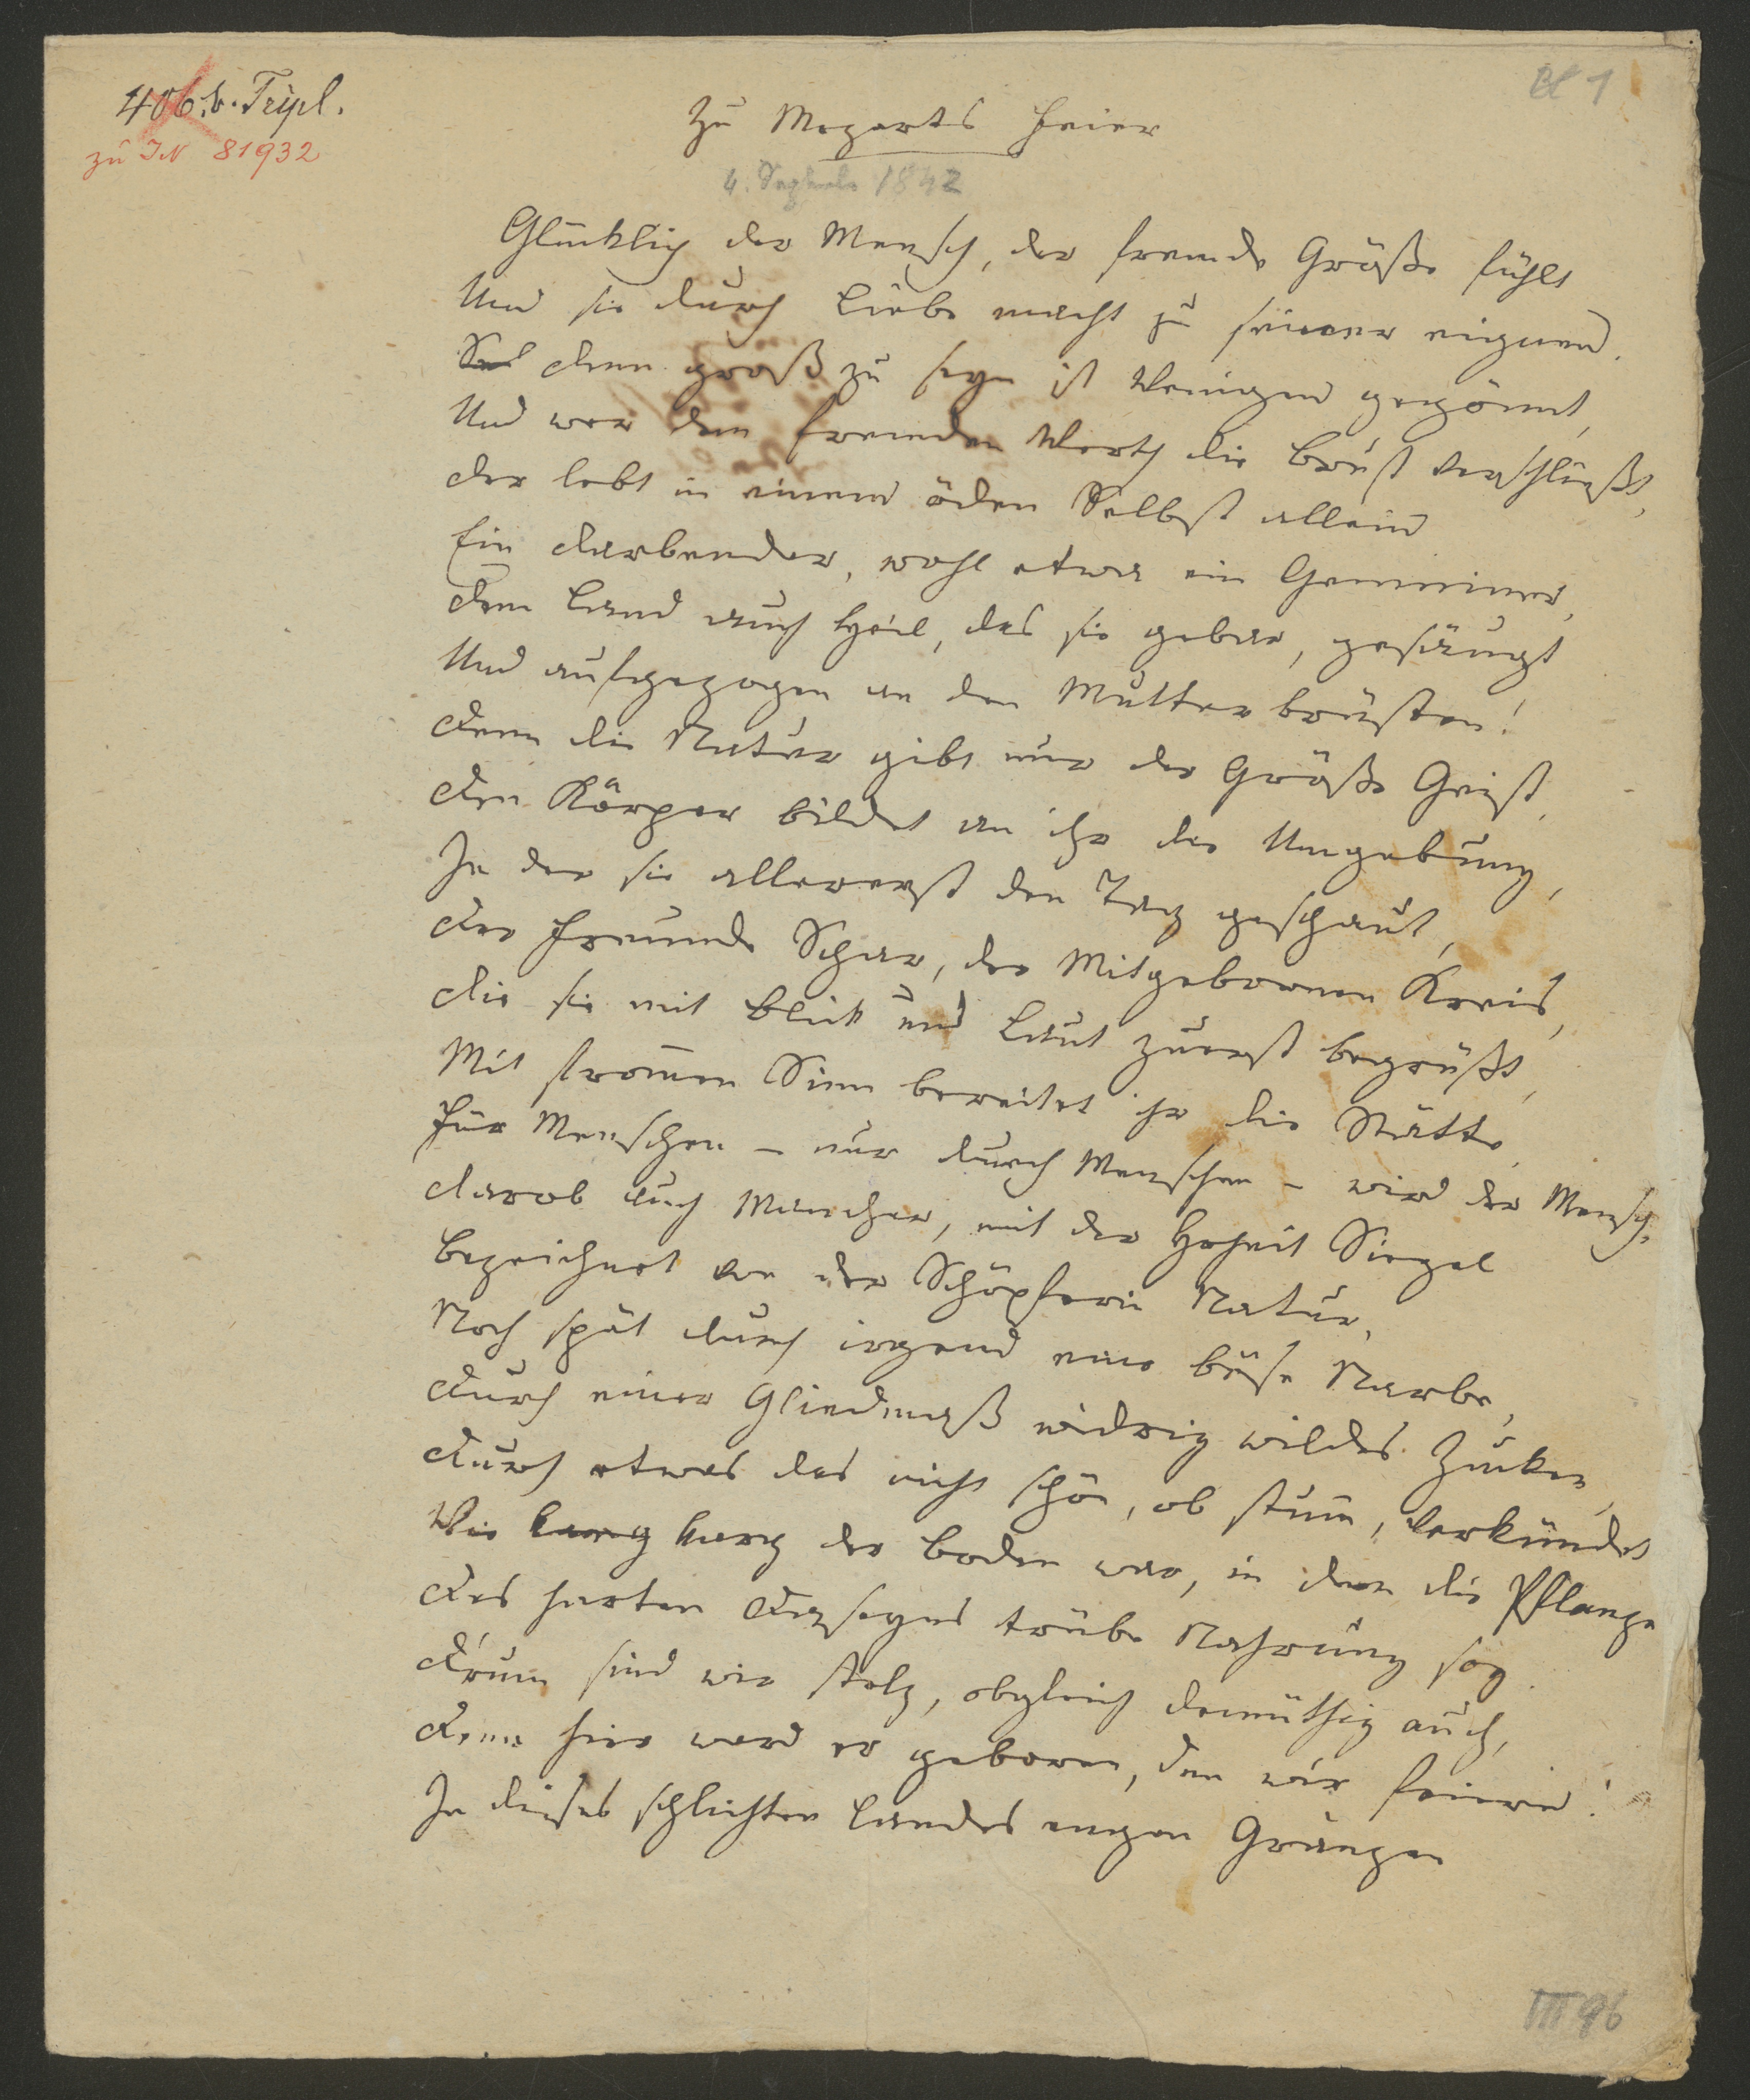 406.b. Tripl.
zu IN 81932
Bl 1
Zu Mozarts Feier
4. September 1842
Glücklich der Mensch, der fremde Größe fühlt
Und sie durch Liebe macht zu seiner eignen.
Denn groß zu seyn ist Wenigen gegönnt,
Und wer dem fremden Werth die Brust verschließt,
Der lebt in einem öden Selbst allein
Ein Darbender, wohl etwa ein Gemeiner,
Dem Land auch Heil, das sie gebar, gesäugt
Und aufgezogen an den Mutterbrüsten!
Denn die Natur gibt nur der Größe Geist,
Den Körper bildet an ihr die Umgebung,
In der sie allererst den Tag geschaut,
Der Freunde Schar, der Mitgebornen Kreis,
Die sie mit Blick und Laut zuerst begrüßt,
Mit frommen Sinn bereitet ihr die Stätte,
Für Menschen – nur durch Menschen – wird der Mensch.
Darob auch Mancher, mit der Hoheit Siegel
Bezeichnet von der Schöpferin Natur,
Noch spät durch irgend eine böse Narbe,
Durch einer Gliedmaß widrig wildes Zucken,
Durch etwas das nicht schön, ob stumm, verkündet
Wie karg karg der Boden war, in dem die Pflanze
Des harten Daseyns trübe Nahrung sog.
Drum sind wir stolz, obgleich demüthig auch,
Denn hier ward er geboren, den wir feiern!
In dieses schlichten Landes engen Gränzen
III 96